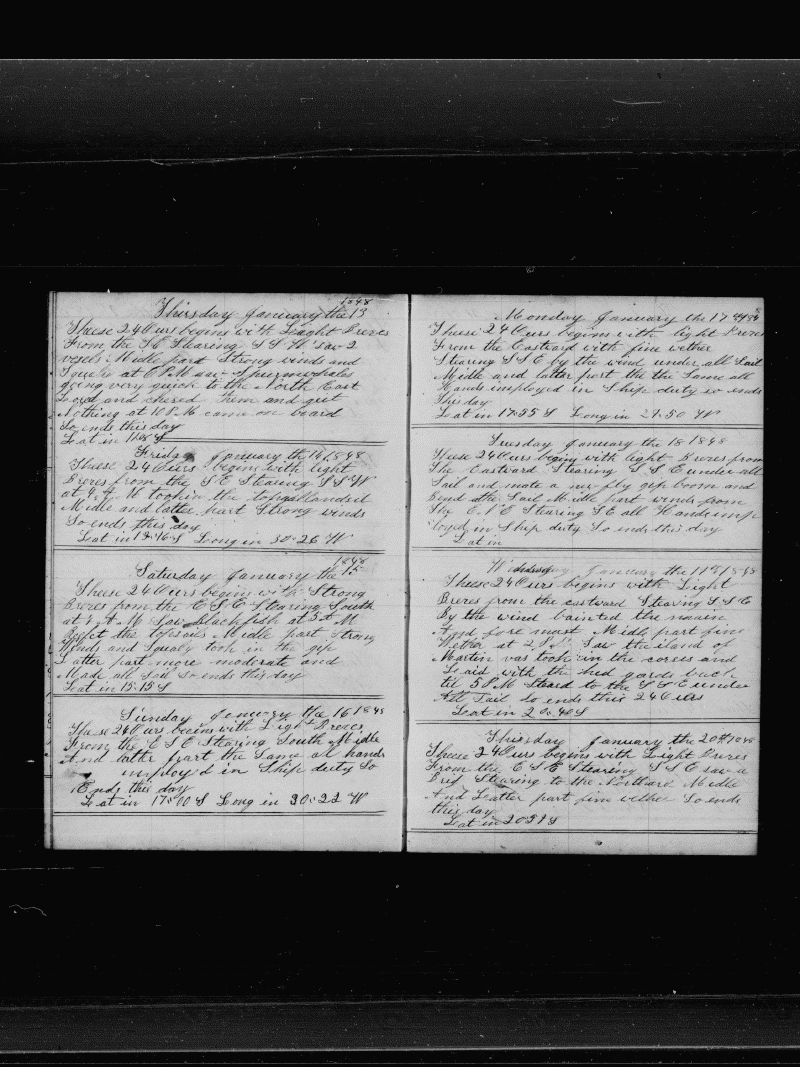 1848
Thirsday January the 13
Theese 24 Ours begins with Light Breres
From the SE Stearing S S W Saw 2
vesels Midle part Strong winds and
Squaly at 6 PM saw Spermwhales
going very quick to the North East
Loyd and chered them and got
Nothing at 10 PM came on board
So ends this day
Lat in S
Friday January the 14 1848
Theese 24 Ours begins with light
Breres from the SE Stearing SSW
at 9 A M tookin the topgallandsil
Midle and latter part Strong winds
So ends this day
Lat in 12=46 S Loong in 30=26 W
1848
Saturday January the 15
Theese 24 Ours begins with Strong
Breres from the E S E Stearing South
at 9 A M Saw blackfish at 5 A M
Reefet the topsails Midle part Strong
Winds and Squaly took in the gip
Latter part more moderate and
Made all Sail So ends this day
Lat in 15=15 S
Sunday January the 16 1848
Theese 24 Ours begins with Light Breres
From the E S E Stearing South Midle
And latter part the Same all hands
imployd in Ship deuty So
Ends this day
Lat in 17=00 S Long in 30=22 W
Monday January the 17
Theese 24 Ours begins with light Breres
From the Eastward with fine wether
Stearing S S E by the wind under all Sail
Midle and latter part the the Same all
Hands imployed in Ship deuty so ends
this day
Lat in 17=55 S Long in 29=50 W
Tuesday January the 18 1848
Theese 24 Ours begins with light Breres from
The Eastward Stearing S S E under all
Sail and mate a new fly gip boom and
Bend the Sail Midle part winds from
The E N E Stearing SE all Hands imp
loyed in Ship deuty So ends this day
Lat in
Wednesday January the 19 1848
Theese 24 Ours begins with Light
Breres from the eastward Stearing S S E
By the wind bainted the maain
And fore mast Midle part fine
Wether at 2 P M Saw the iland of
Martin vas took in the corses and
Laid with the hed yards back
til 5 PM Steard to the S S E under
All Sail So ends this 24 Ours
Lat in 20=40 S
Thirsday January the 20 1848
Theese 24 Ours begins with Light Breres
From the E S E Stearing S S E saw a
Brig Stearing to the Northard Midle
And Latter part fine wether So ends
this day
Lat in 20 51 S